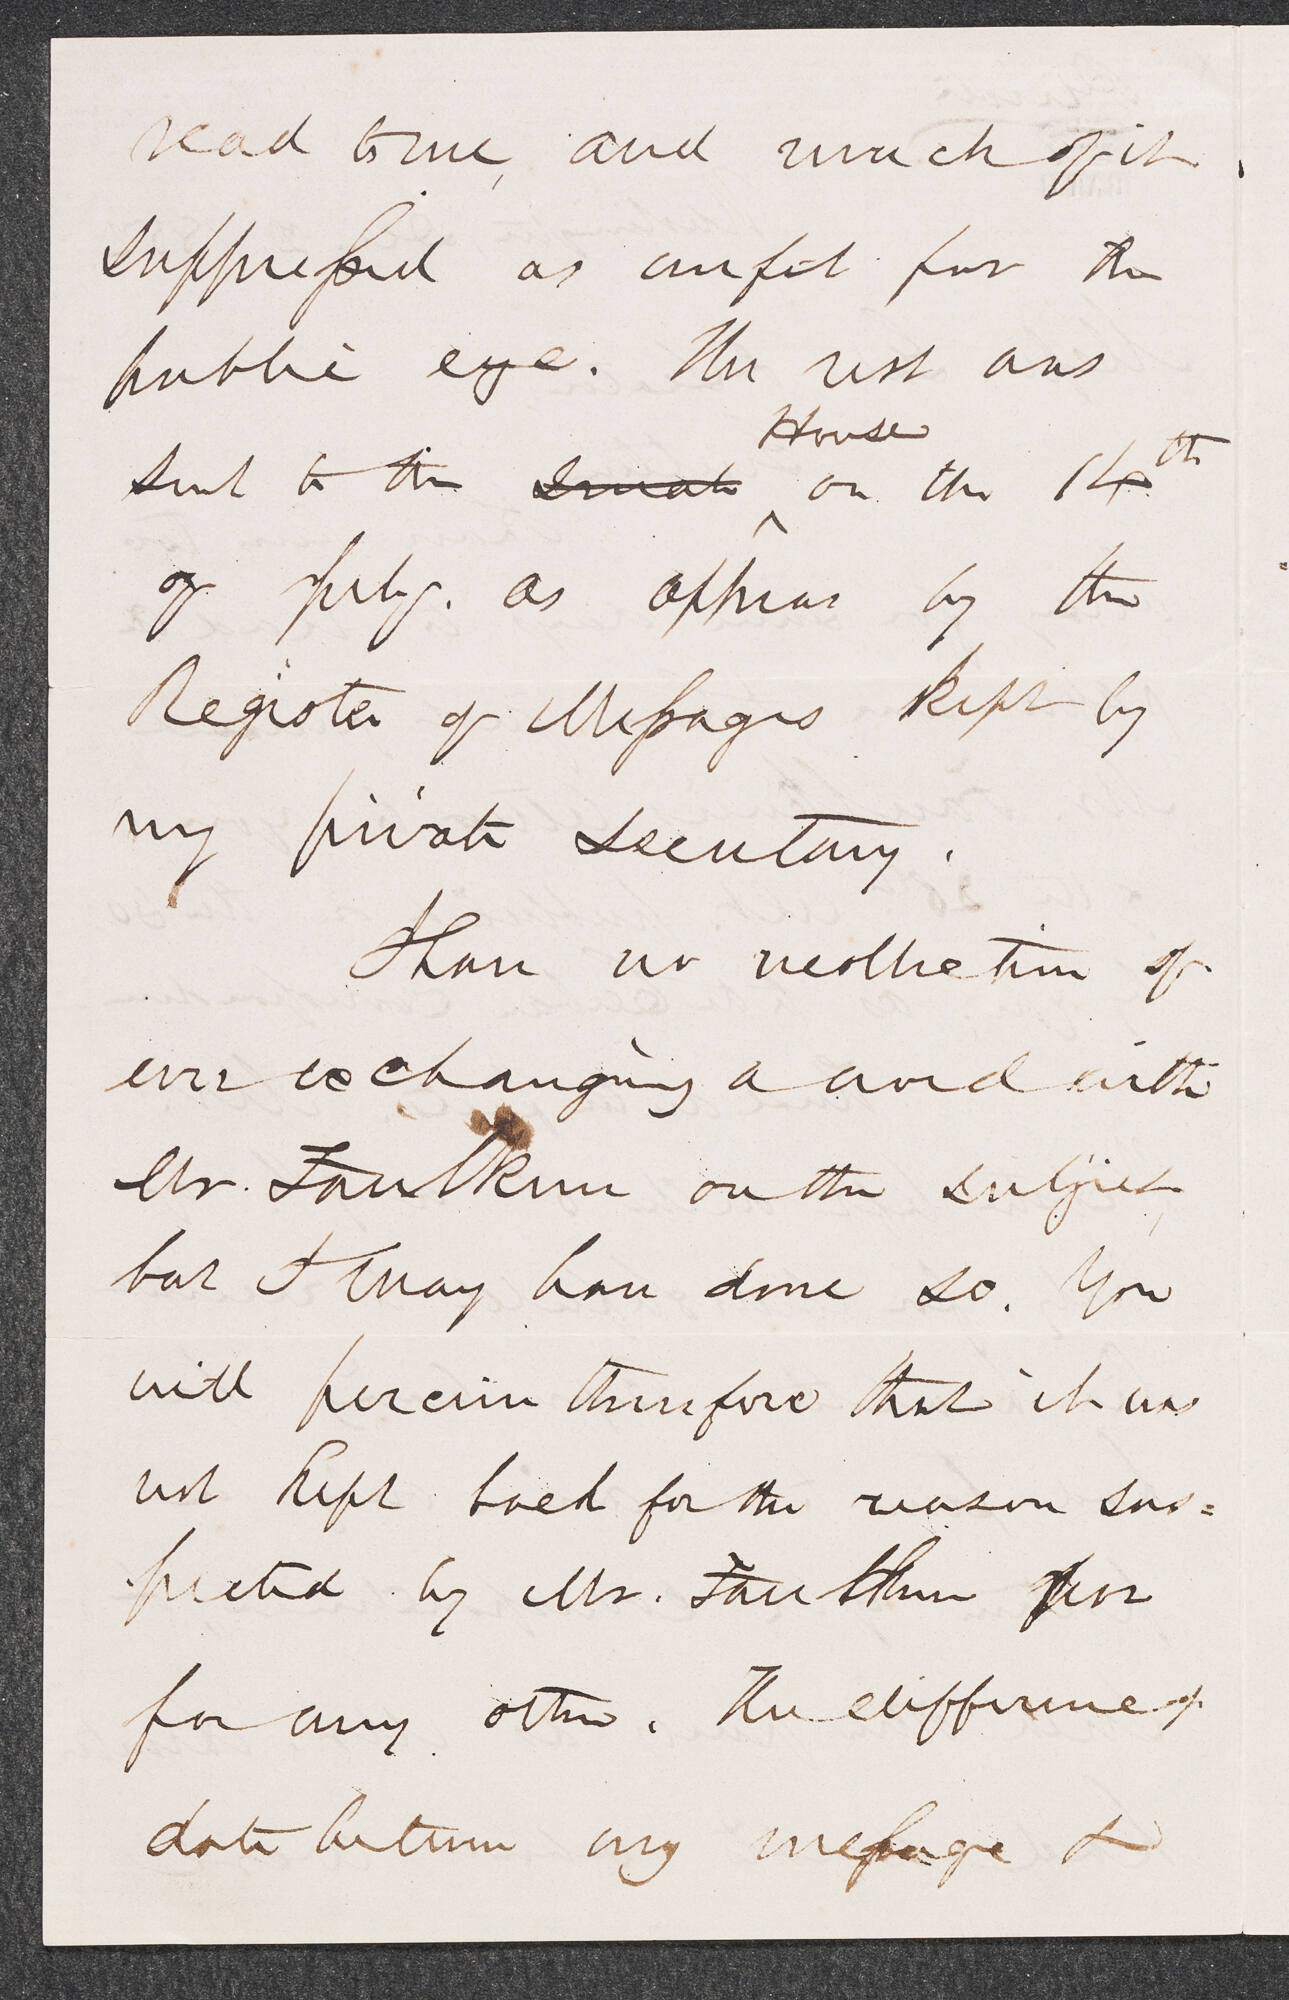 read to me, and much of it
suppressed as unfit for the
public eye. The rest was
sent to the Senate House on the 14th
of July. as appears by the
Register of Messages kept by
my private secretary.
I have no recollection of
ever exchanging a word with
Mr. Faulkner on the subject,
but I may have done so. You
will perceive therefore that it was
not kept back for the reason sus=
pected by Mr. Faulkner nor
for any other. The difference of
date between my message &